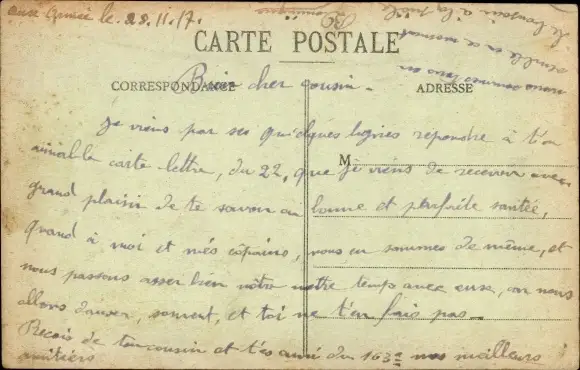 aux Armée le. 28.11.17.
CARTE POSTALE
CORRESPONDANCE
ADRESSE
Bien cher cousin.
Je viens par ses quelques lignes repondre à ton
aimable carte lettre, du 22, que je viens de recevoir avec
M
grand plaisir de te savoir en bonne et parfaite santée,
quand à moi et mes copains, nous en sommes de même, et
nous passons asser bien nôtre temps avec eux, on nous
allons danser, souvent, et toi ne t'en fais pas
Recois de ton cousin et tes ami du 163e nos meilleurs
amitiers
nous sommes tous en
semble en ce moment
le bonjour à la